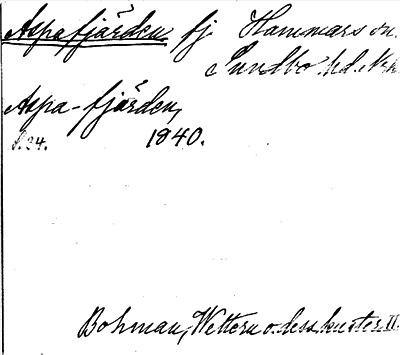 Aspafjärden fj Hammars sn.
Sundbo hd. Nke
Aspa-fjärden,
s. 24. 1840.
Bohman, Wettern o. dess kuster II.